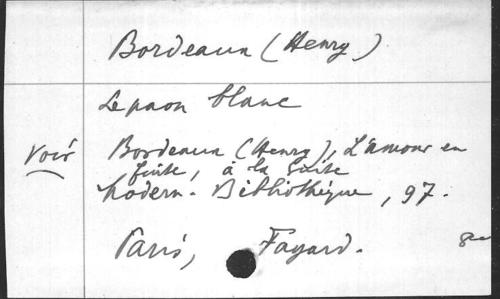 Bordeaux (Henry)
Le paon blanc
Voir Bordeaux (Henry), L'amour en
fuite, à la suite
Modern-Bibliothèque, 97.
Paris, Fayard.